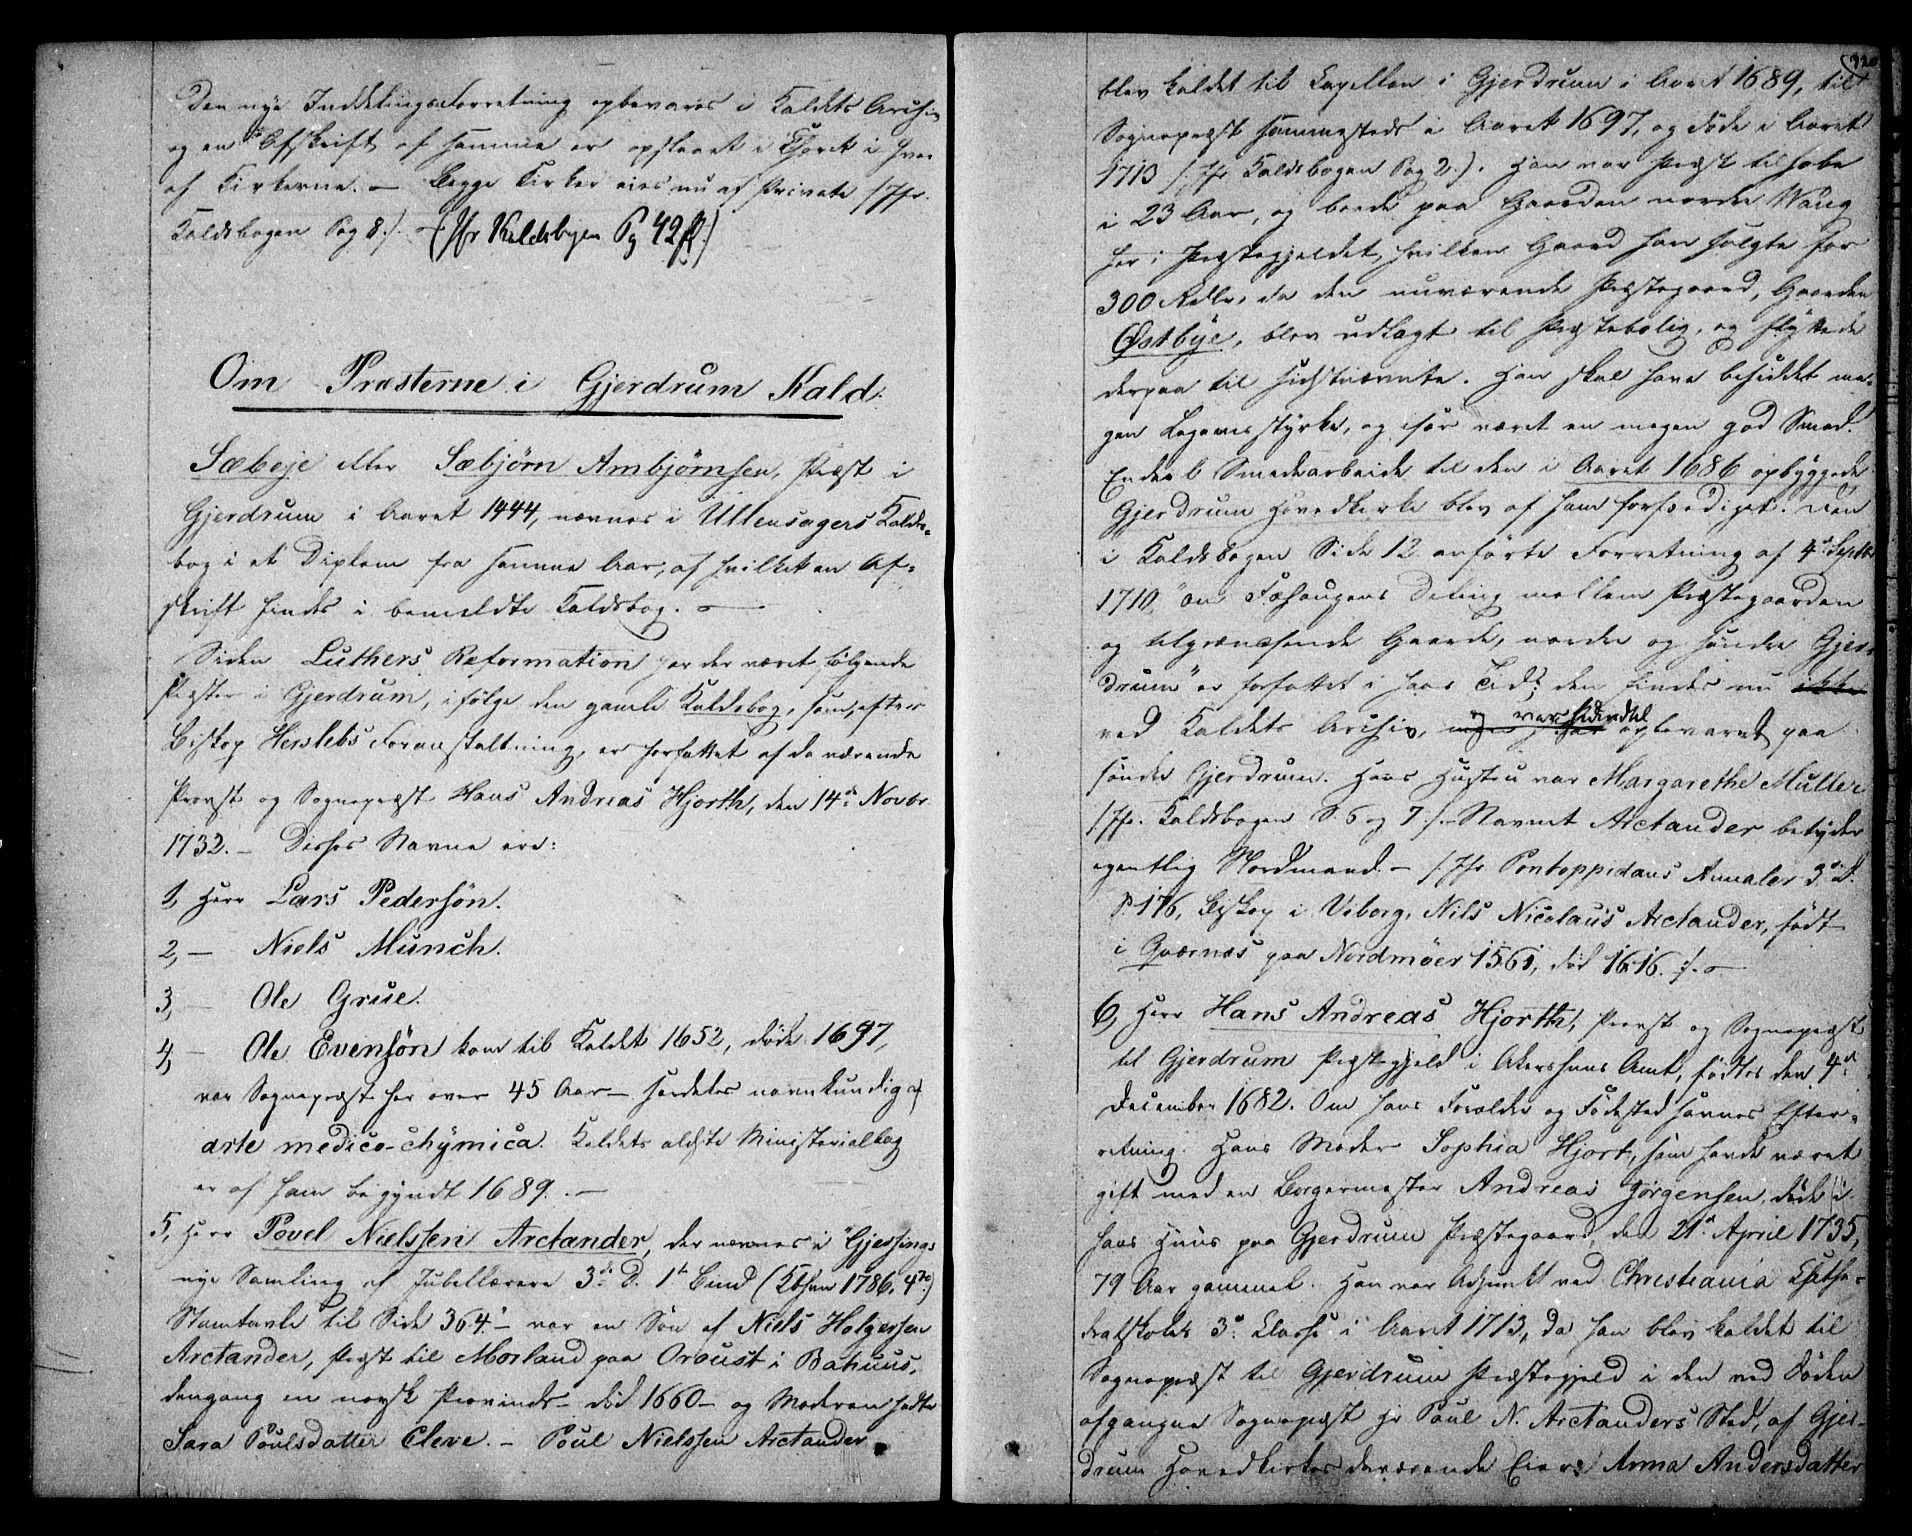 Den nye Inddelingsforretning opbevares i Kaldets Archiv
og en Afskrift af samme er opslaaet i Choret i hver
af Kirkerne. – Begge Kirker eies nu af Private /:Jfr.
Kaldsbogen Pag 8./. – (Jfr Kaldsbogen Pg 42 ff.)
Om Præsterne i Gjerdrum Kald.
Sæbeje eller Sæbjørn Ambjørnsen, Præst i
Gjerdrum i Aaret 1444, nævnes i Ullensagers Kalds-
bog i et Diplom fra samme Aar, af hvilket en Af-
skrift findes i bemeldte Kaldsbog. –
Siden Luthers Reformation har der været følgende
Præster i Gjerdrum, ifølge den gamle Kaldsbog, som, efter
Biskop Herslebs Foranstaltning, er forfattet af da værende
Provst og Sognepræst Hans Andreas Hjorth, den 14de Novbr
1732. – Disses Navne ere:
1, Herr Lars Pedersøn.
2, – Niels Munch.
3, – Ole Grue.
4, – Ole Evensøn kom til Kaldet 1652, døde 1697,
var Sognepræst her over 45 Aar – særdeles navnkundig af
arte medico-chymica. Kaldets ældste Ministerialbog
er af ham begyndt 1689. –
5, Herr Povel Nielssen Arctander, der nævnes i "Gjessings
nye Samling af Jubellærere 3die D. 1ste Bind (Kbhvn 1786, 4to)
Stamtavle til Side 364." – var en Søn af Niels Holgersen
Arctander, Præst til Morland paa Oroust i Bahuus,
dengang en norsk Provinds – død 1660 – og Moderen hedte
Sara Poulsdatter Cleve. – Poul Nielssen Arctander
320
blev kaldet til Capellan i Gjerdrum i Aaret 1689, til
Sognepræst sammesteds i Aaret 1697, og døde i Aaret
1713 /:Jfr Kaldsbogen Pag 2.). Han var Præst tilsabe
i 23 Aar, og boede paa Gaarden nordre Wang
her i Præstegjeldet, hvilken Gaard han solgte for
300 Rdlr, da den nuværende Præstegaard, Gaarden
Østbye, blev udlagt til Præstebolig, og flyttede
derpaa til sidstnævnte. Han skal have besiddet me-
gen Legemsstyrke, og især været en megen god Smed.
Endeel Smedearbeide til den i Aaret 1686 opbyggede
Gjerdrum Hovedkirke blev af ham forfærdiget. Den
i Kaldsbogen Side 12 anførte Forretning af 4de Septbr
1710, "om Fæhaugens Deling mellem Præstegaarden
og tilgrændsende Gaarde, nordre og søndre Gjer-
drum" er forfattet i hans Tid; den findes nu ikke
ved Kaldets Archiv, og var sidendel opbevaret paa
søndre Gjerdrum. Hans Hustru var Margarethe Müller
/:Jfr. Kaldsbogen S. 6 og 7 :/. – Navnet Arctander betyder
egentlig Nordmand. – /:Jfr Pontoppidans Annaler 3die D.
P. 176, Biskop i Viborg, Nils Nicolaus Arctander, født
i Qværnes paa Nordmöer 1561, død 1616. :/. –
6, Herr Hans Andreas Hjorth, Provst og Sognepræst
til Gjerdrum Præstegjeld i Akershuus Amt, fødtes den 4de
December 1682. Om hans Forældre og Fødested savnes Efter-
retning. Hans Moder Sophia Hjort, som havde været
gift med en Borgermester Andreas Jörgensen, døde i
hans Huus paa Gjerdrum Præstegaard, den 21de April 1735,
79 Aar gammel. Han var Adjunkt ved Christiania Cathe-
dralskoles 3die Classe i Aaret 1713, da han blev kaldet til
Sognepræst til Gjerdrum Præstegjeld i den ved Døden
afgangne Sognepræst Hr Poul N. Arctanders Sted, af Gjer-
drum Hovedkirkes daværende Eier: Anna Andersdatter